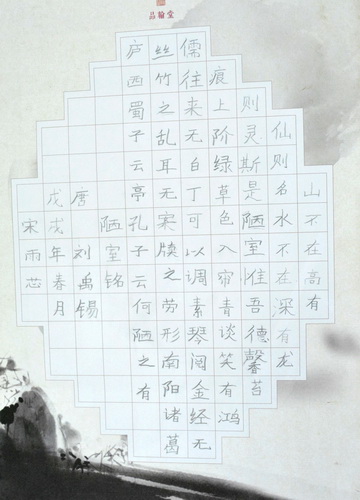 品翰堂
山不在高有
仙则名水不在深有龙
则灵斯是陋室惟吾德馨苔
痕上阶绿草色入帘青谈笑有鸿
儒往来无白丁可以调素琴阅金经无
丝竹之乱耳无案牍之劳形南阳诸葛
庐西蜀子云亭孔子云何陋之有
陋室铭
唐刘禹锡
戊戌年春月
宋雨芯